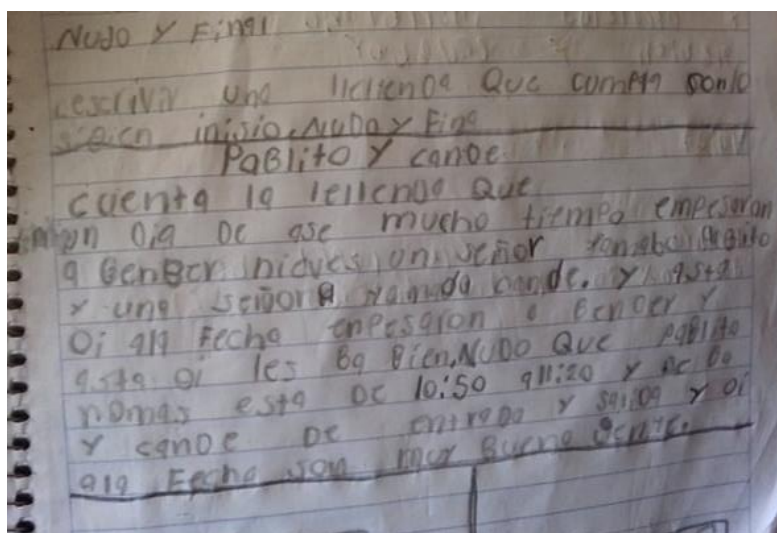 NuDo Y Final
escrivir una llellenda Que cumpla con lo
inisio, NuDo Y Fina
PaBlito Y canDe
cuenta la lellenDa Que
un Dia De ase mucho tiempo empesaron
a BenDer nieves un señor
Y una señora canDe. Y asta
Oi ala Fecha enpesaron a BenDer Y
asta oi les Ba Bien, NuDo Que paBlito
nomas esta De 10:50 a 11:20 Y
Y canDe De entraDa Y saliDa Y oi
ala Fecha son muy Buena Jente.